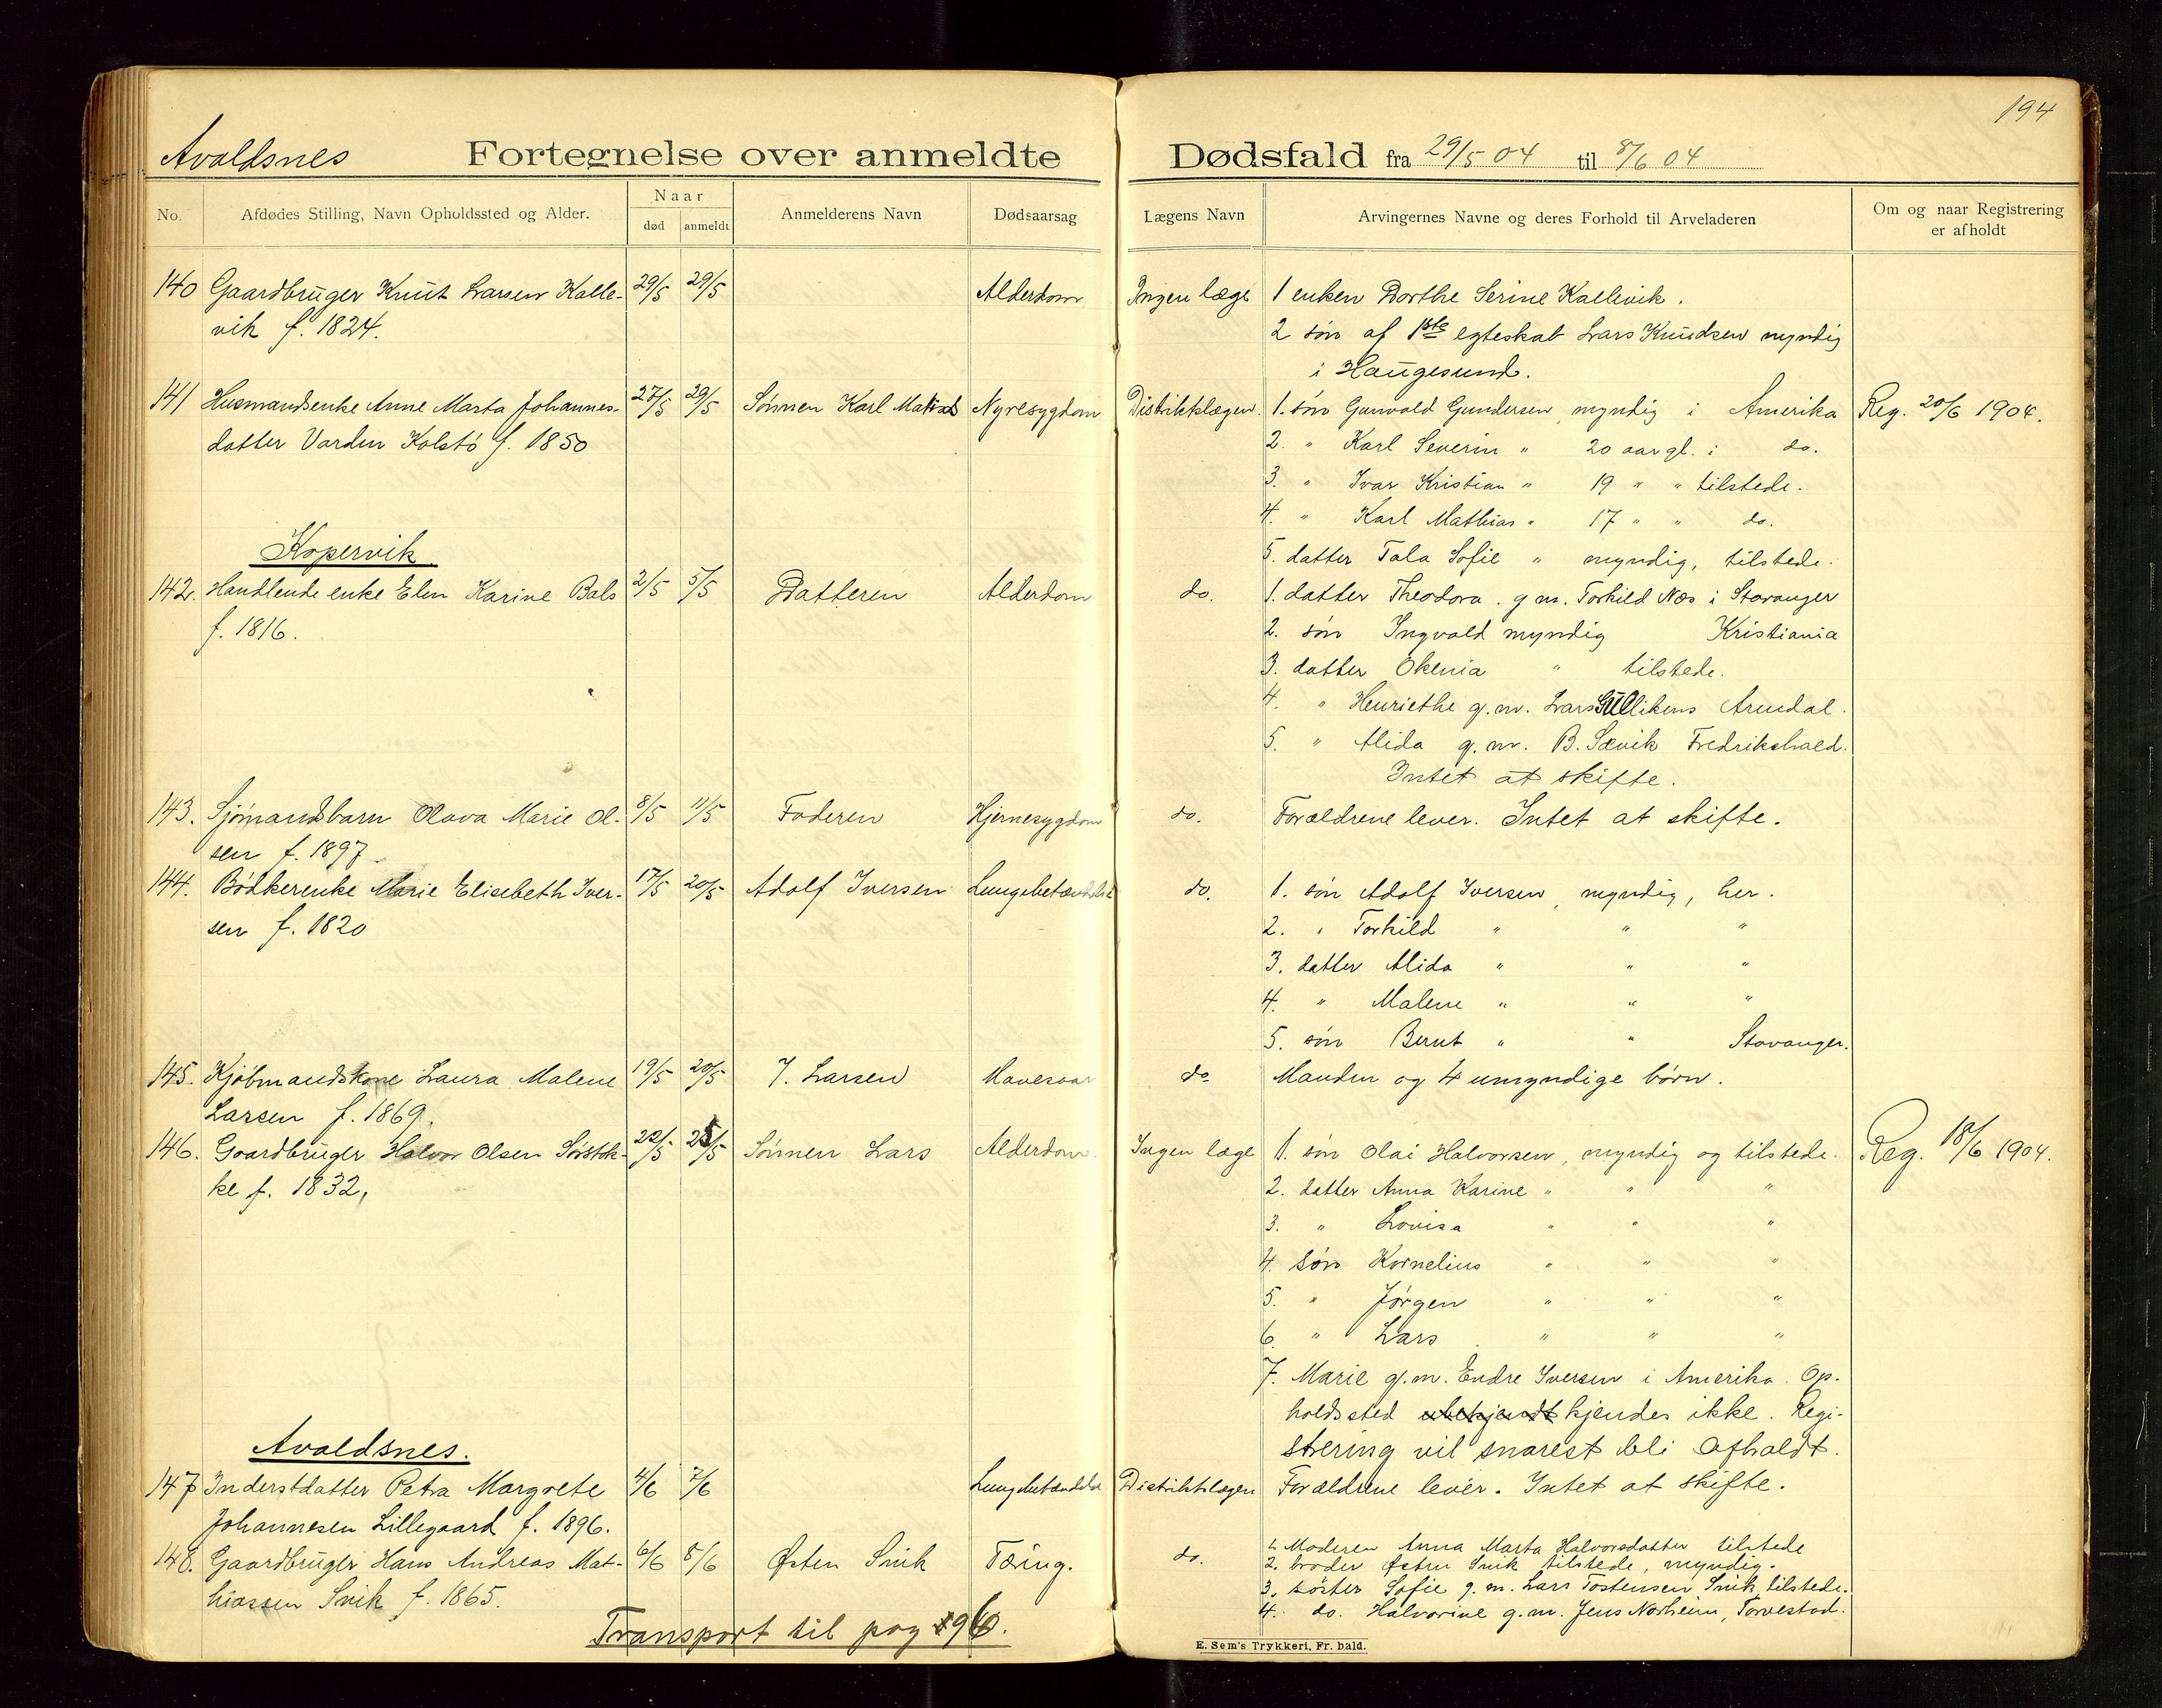 194
Avaldsnes Fortegnelse over anmeldte Dødsfald fra 29/5 04 til 8/6 04
No. Afdødes Stilling, Navn Opholdssted og Alder. Naar død anmeldt Anmelderens Navn Dødsaarsag Lægens Navn Arvingernes Navne og deres Forhold til Arveladeren Om og naar Registrering er afholdt
140 Gaardbruger Knut Larsen Kalle- 29/5 29/5 Alderdom Ingen læge 1 enken Dorthe Serine Kallevik.
vik f. 1824. 2 søn af 1ste egteskab Lars Knudsen myndig
i Haugesund.
141 Husmandsenke Anne Marta Johannes- 27/5 29/5 Sønnen Karl Mathias Nyresygdom Distriktslægen. 1. søn Gunvald Gundersen, myndig i Amerika Reg. 20/6 1904.
datter Varden Kolstø f. 1850 2. " Karl Severin " 20 aar gl. i do.
3. " Ivar Kristian " 19 " " tilstede.
4. " Karl Mathias " 17 " " do.
Kopervik 5. datter Tala Sofie " myndig, tilstede.
142. Handlende enke Elen Karine Bals 2/5 5/5 Datteren Alderdom do. 1. datter Theodora. g m. Torkild Næs i Stavanger
f. 1816. 2. søn Ingvald myndig Kristiania
3. datter Okenia " tilstede.
4. " Henriethe g. m. Lars Gullikens Arendal.
5. " Alida g. m. B. Sævik Fredrikshald.
Intet at skifte.
143. Sjømandsbarn Olava Marie Ol- 8/5 11/5 Faderen Hjernesygdom do. Forældrene lever. Intet at skifte.
sen f. 1897
144. Bødkerenke Marie Elisebeth Iver- 17/5 20/5 Adolf Iversen Lungebetændelse do. 1. søn Adolf Iversen, myndig, her.
sen f. 1820 2. " Torkild " " "
3. datter Alida " " "
4. " Malene " " "
5. søn Bernt " " Stavanger.
145. Kjøbmandskone Laura Malene 19/5 20/5 J. Larsen Mavesaar do Manden og 4 umyndige børn.
Larsen f. 1869.
146. Gaardbruger Halvor Olsen Sørstok- 22/5 25/5 Sønnen Lars Alderdom. Ingen læge 1. søn Olai Halvorsen, myndig og tilstede. Reg. 18/6 1904.
ke f. 1832, 2. datter Anna Karine " " "
3. " Lovisa " " "
4. søn Kornelius " " "
5. " Jørgen " " "
6 " Lars " " "
7. Marie g. m. Endre Iversen i Amerika. Op-
holdssted ubekjendt kjendes ikke. Regi-
Avaldsnes. strering vil snarest bli afholdt.
147 Inderstdatter Petra Margrete 4/6 7/6 Lungebetændelse Distriktslægen Forældrene lever. Intet at skifte.
Johannesen Lillegaard f. 1896.
148. Gaardbruger Hans Andreas Mat- 6/6 8/6 Østen Snik Tæring. do. 1. Moderen Anna Marta Halvorsdatter tilstede
2. broder Østen Snik tilstede, myndig.
hiassen Snik f. 1865. 3. søster Sofie g. m. Lars Tostensen Snik, tilstede.
4. do. Halvorine g. m. Jens Norheim, Torvestad.
Transport til pag 196.
E. Sem's Trykkeri, Fr. hald.